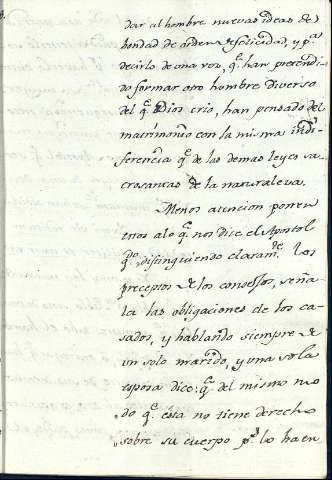 dar al hombre nuevas ideas de
bondad de orden de felicidad, y pª
decirlo de una vez, q.ᵉ han pretendi-
do formar otro hombre diverso
del q.ᵉ Dios crio, han pensado del
matrimonio con la misma indi-
ferencia q.ᵉ de las demas leyes sa-
crosantas de la naturaleza.
Menos atencion ponen
estos a lo q.ᵉ nos dice el Apostol
q.ᵈᵒ distinguiendo claram.ᵗᵉ los
preceptos de los consejos, seña-
la las obligaciones de los ca-
sados, y hablando siempre de
un solo marido, y una sola
esposa dice: q.ᵉ del mismo mo-
do q.ᵉ esta no tiene derecho
sobre su cuerpo p.ʳ lo ha en